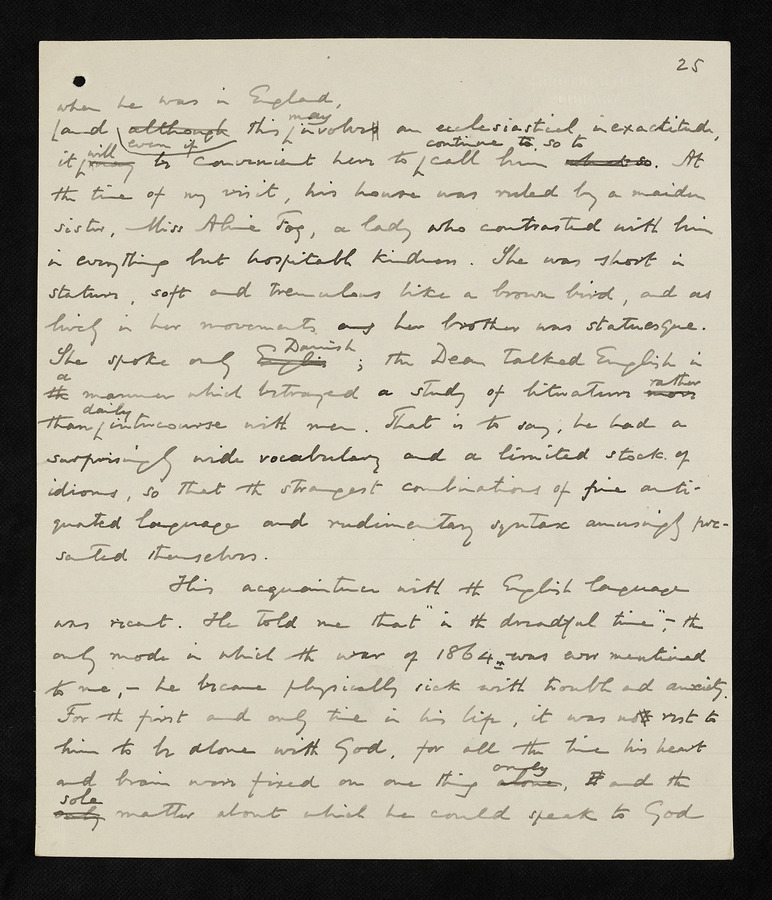 25
when he was in England,
[and although even if this may involves an ecclesiastical inexactitude,
it may will be convenient here to continue to call him so to what so. At
the time of my visit, his house was ruled by a maiden
sister, Miss Aline Fog, a lady who contrasted with him
in everything but hospitable kindness. She was short in
stature, soft and tremulous like a brown bird, and as
lively in her movements as her brother was statuesque.
She spoke only English Danish; the Dean talked English in
the a manner which betrayed a study of literature more rather
than daily intercourse with men. That is to say, he had a
surprisingly wide vocabulary and a limited stock of
idioms, so that the strangest combinations of fine anti-
quated language and rudimentary syntax amusingly pre-
sented themselves.
His acquaintance with the English language
was recent. He told me that "in the dreadful time",- the
only mode in which the war of 1864 was ever mentioned
to me,- he became physically sick with trouble and anxiety.
For the first and only time in his life, it was not rest to
him to be alone with God, for all the time his heart
and brain were fixed on one thing alone only, and the
only sole matter about which he could speak to God